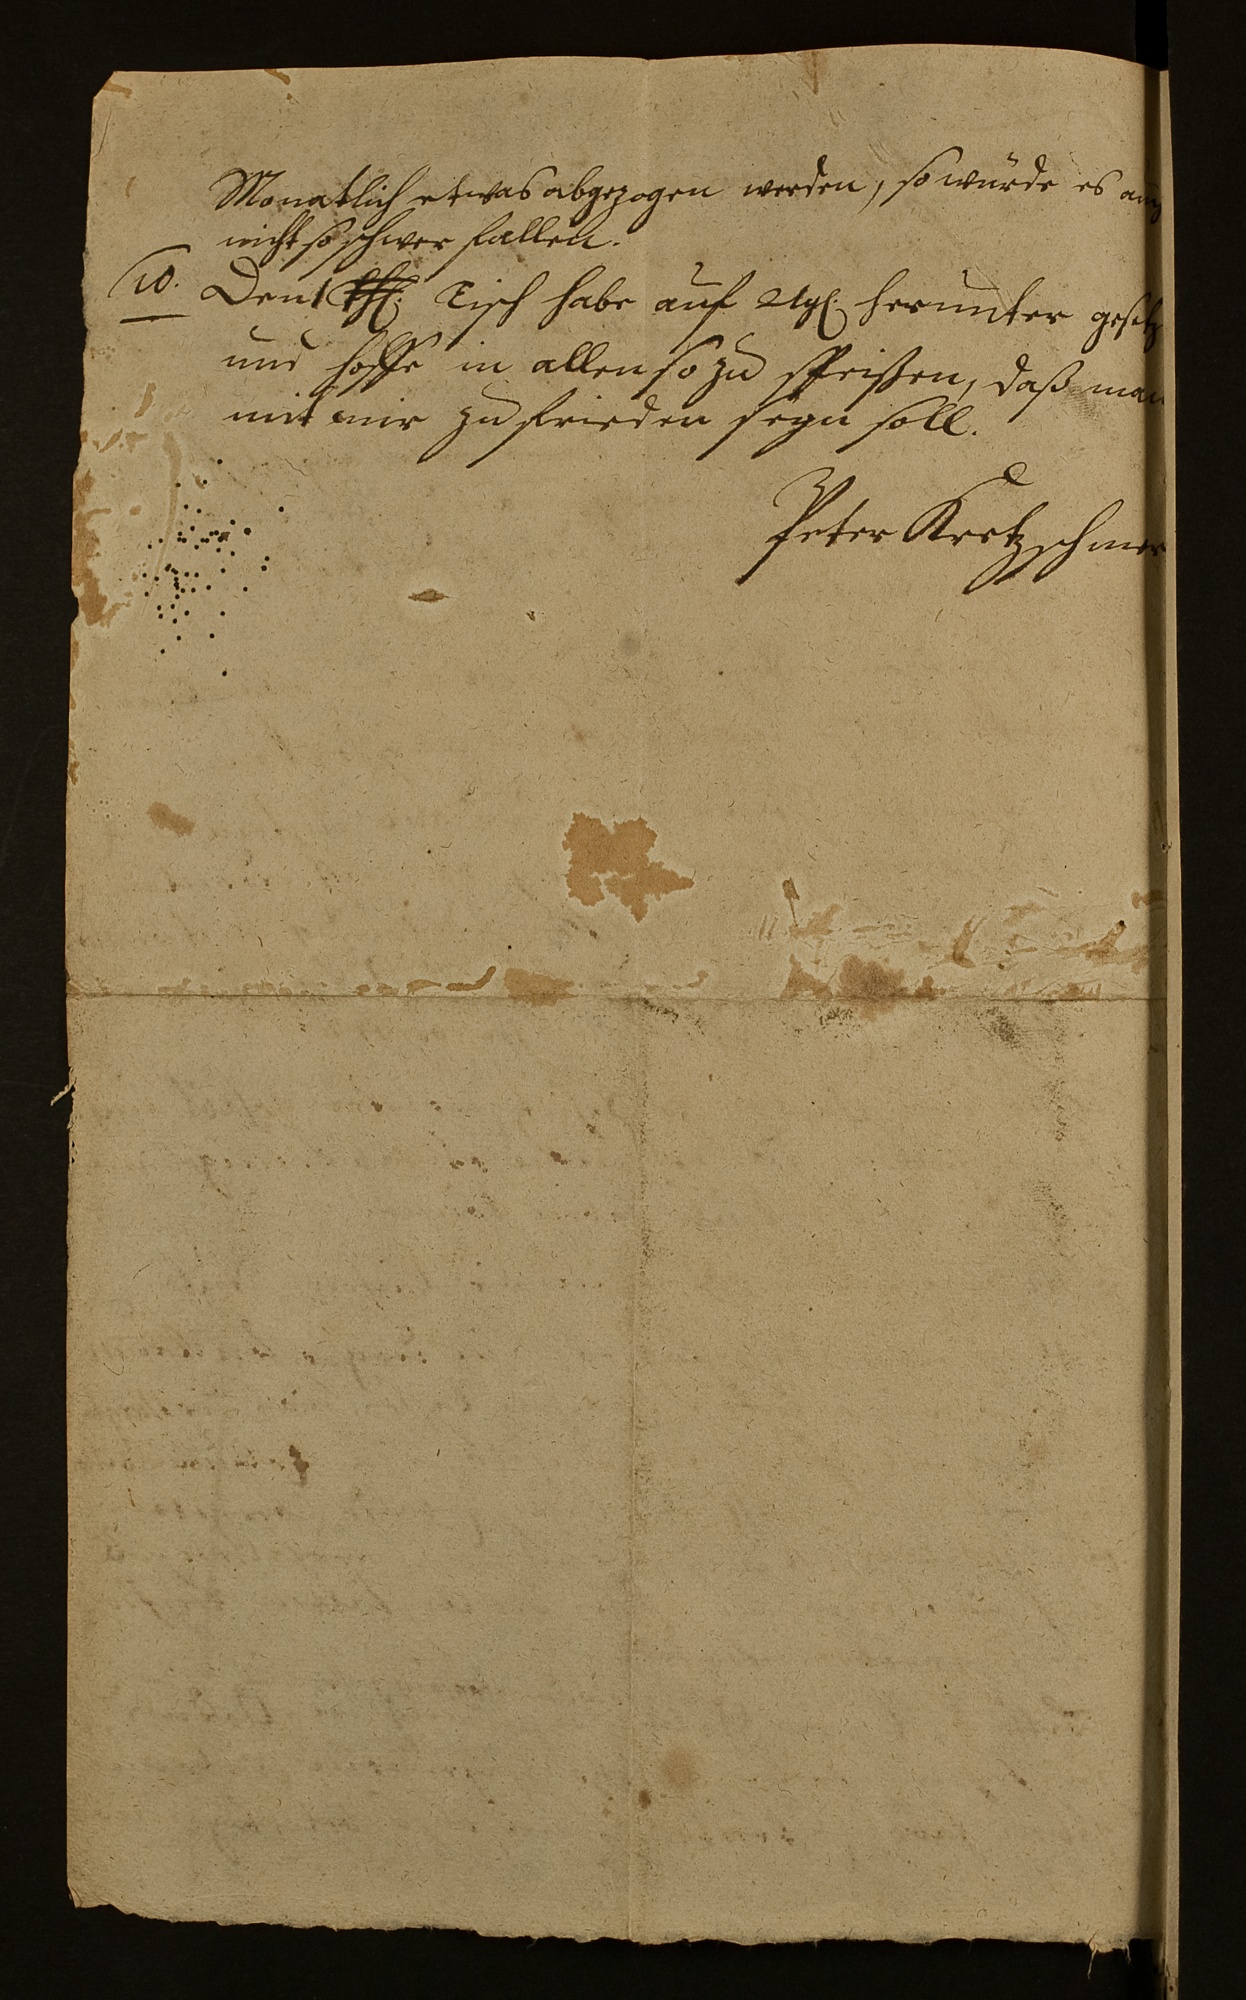 Monatlich etwas abgezogen werden, so würde es auch
nicht so schwer fallen.
10. Den 1 Tisch habe auf herunter gesetz
und hoffe in allen so zu speißen, daß man
mit mir zu frieden seyn soll.
Peter Kretzschmer